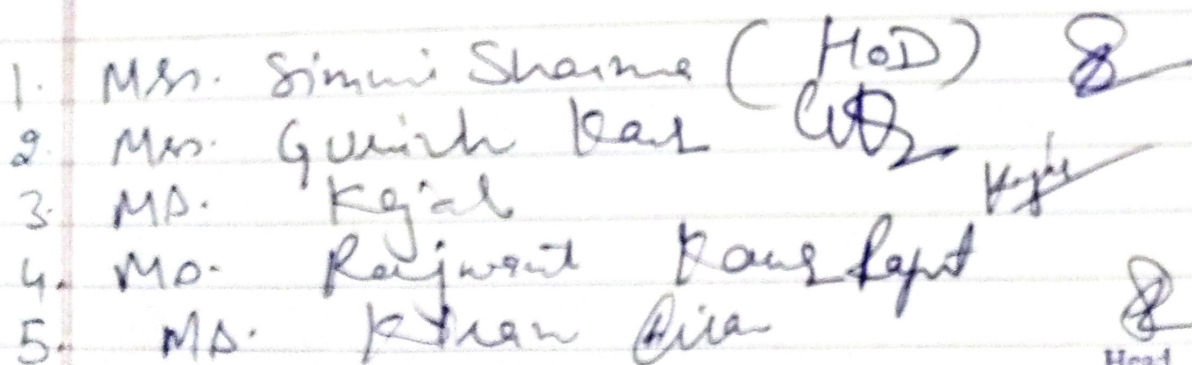 1. Mrs. Simmi Sharma (HoD)
2. Mrs. Kaur
3. Ms. Kajal
4. Ms. Rajwant Kaur
5. Ms. Kiran
Head